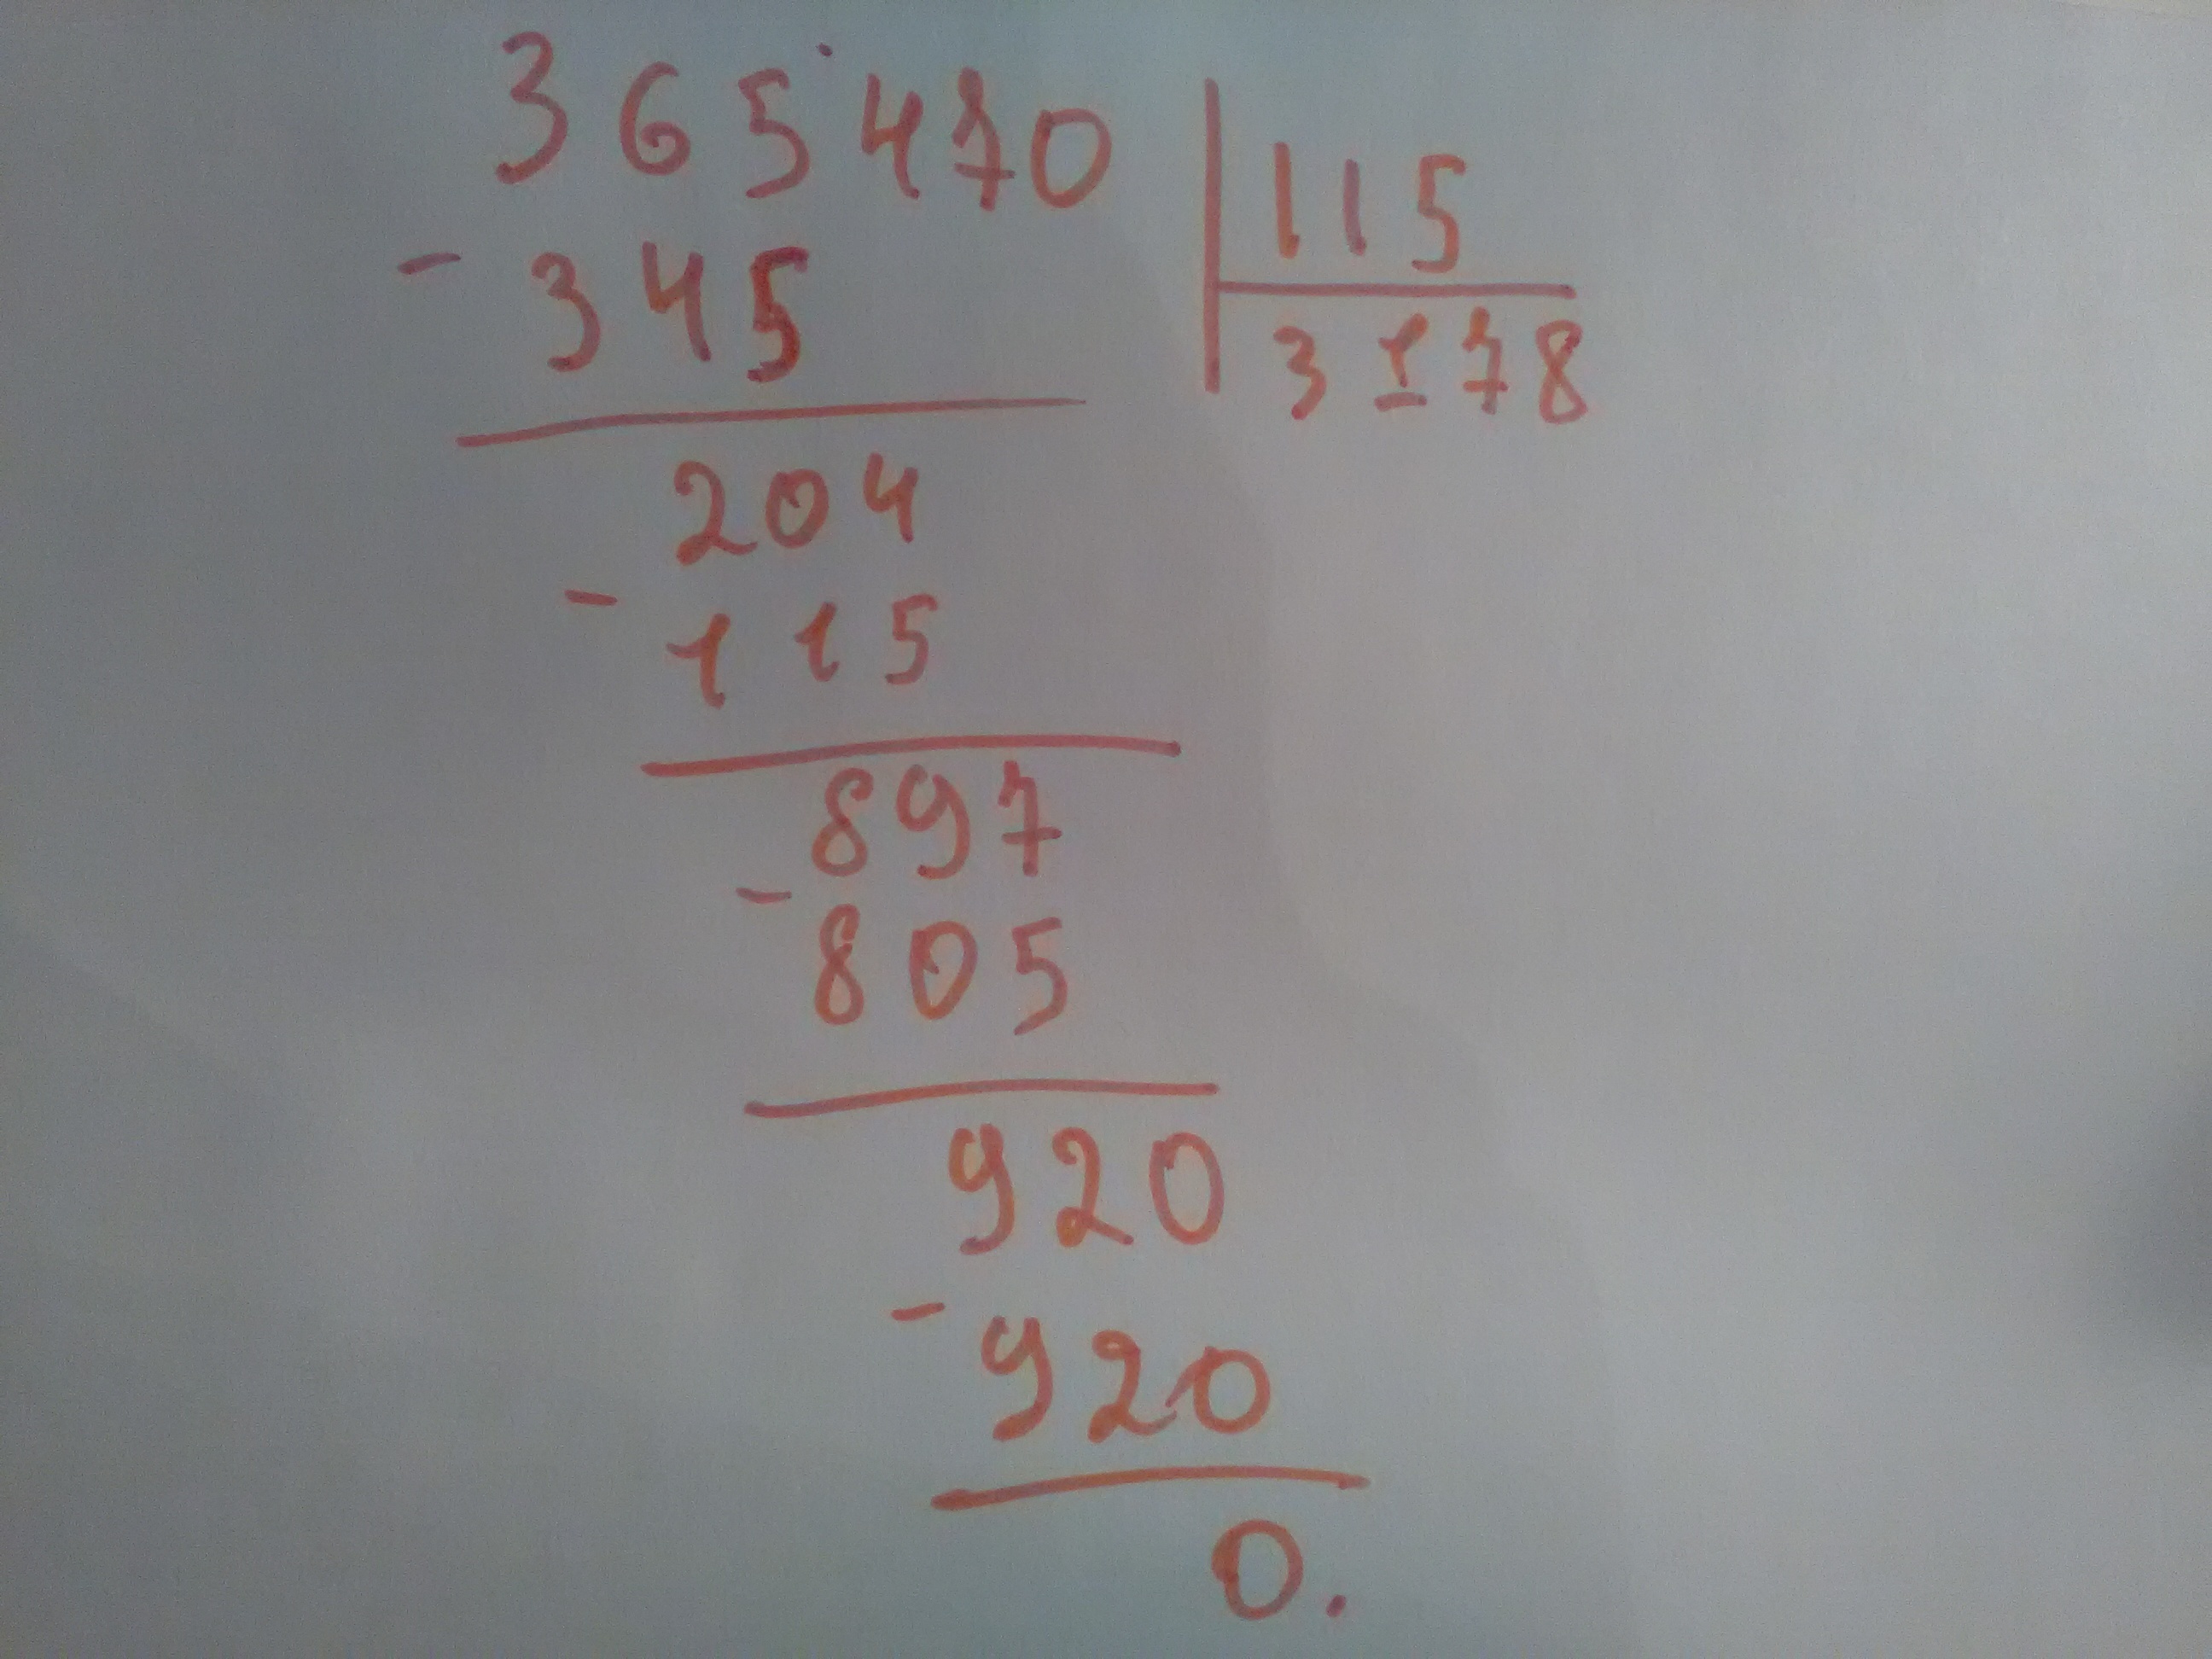 365470 | 115
- 345 3178
204
- 115
897
- 805
920
- 920
0.